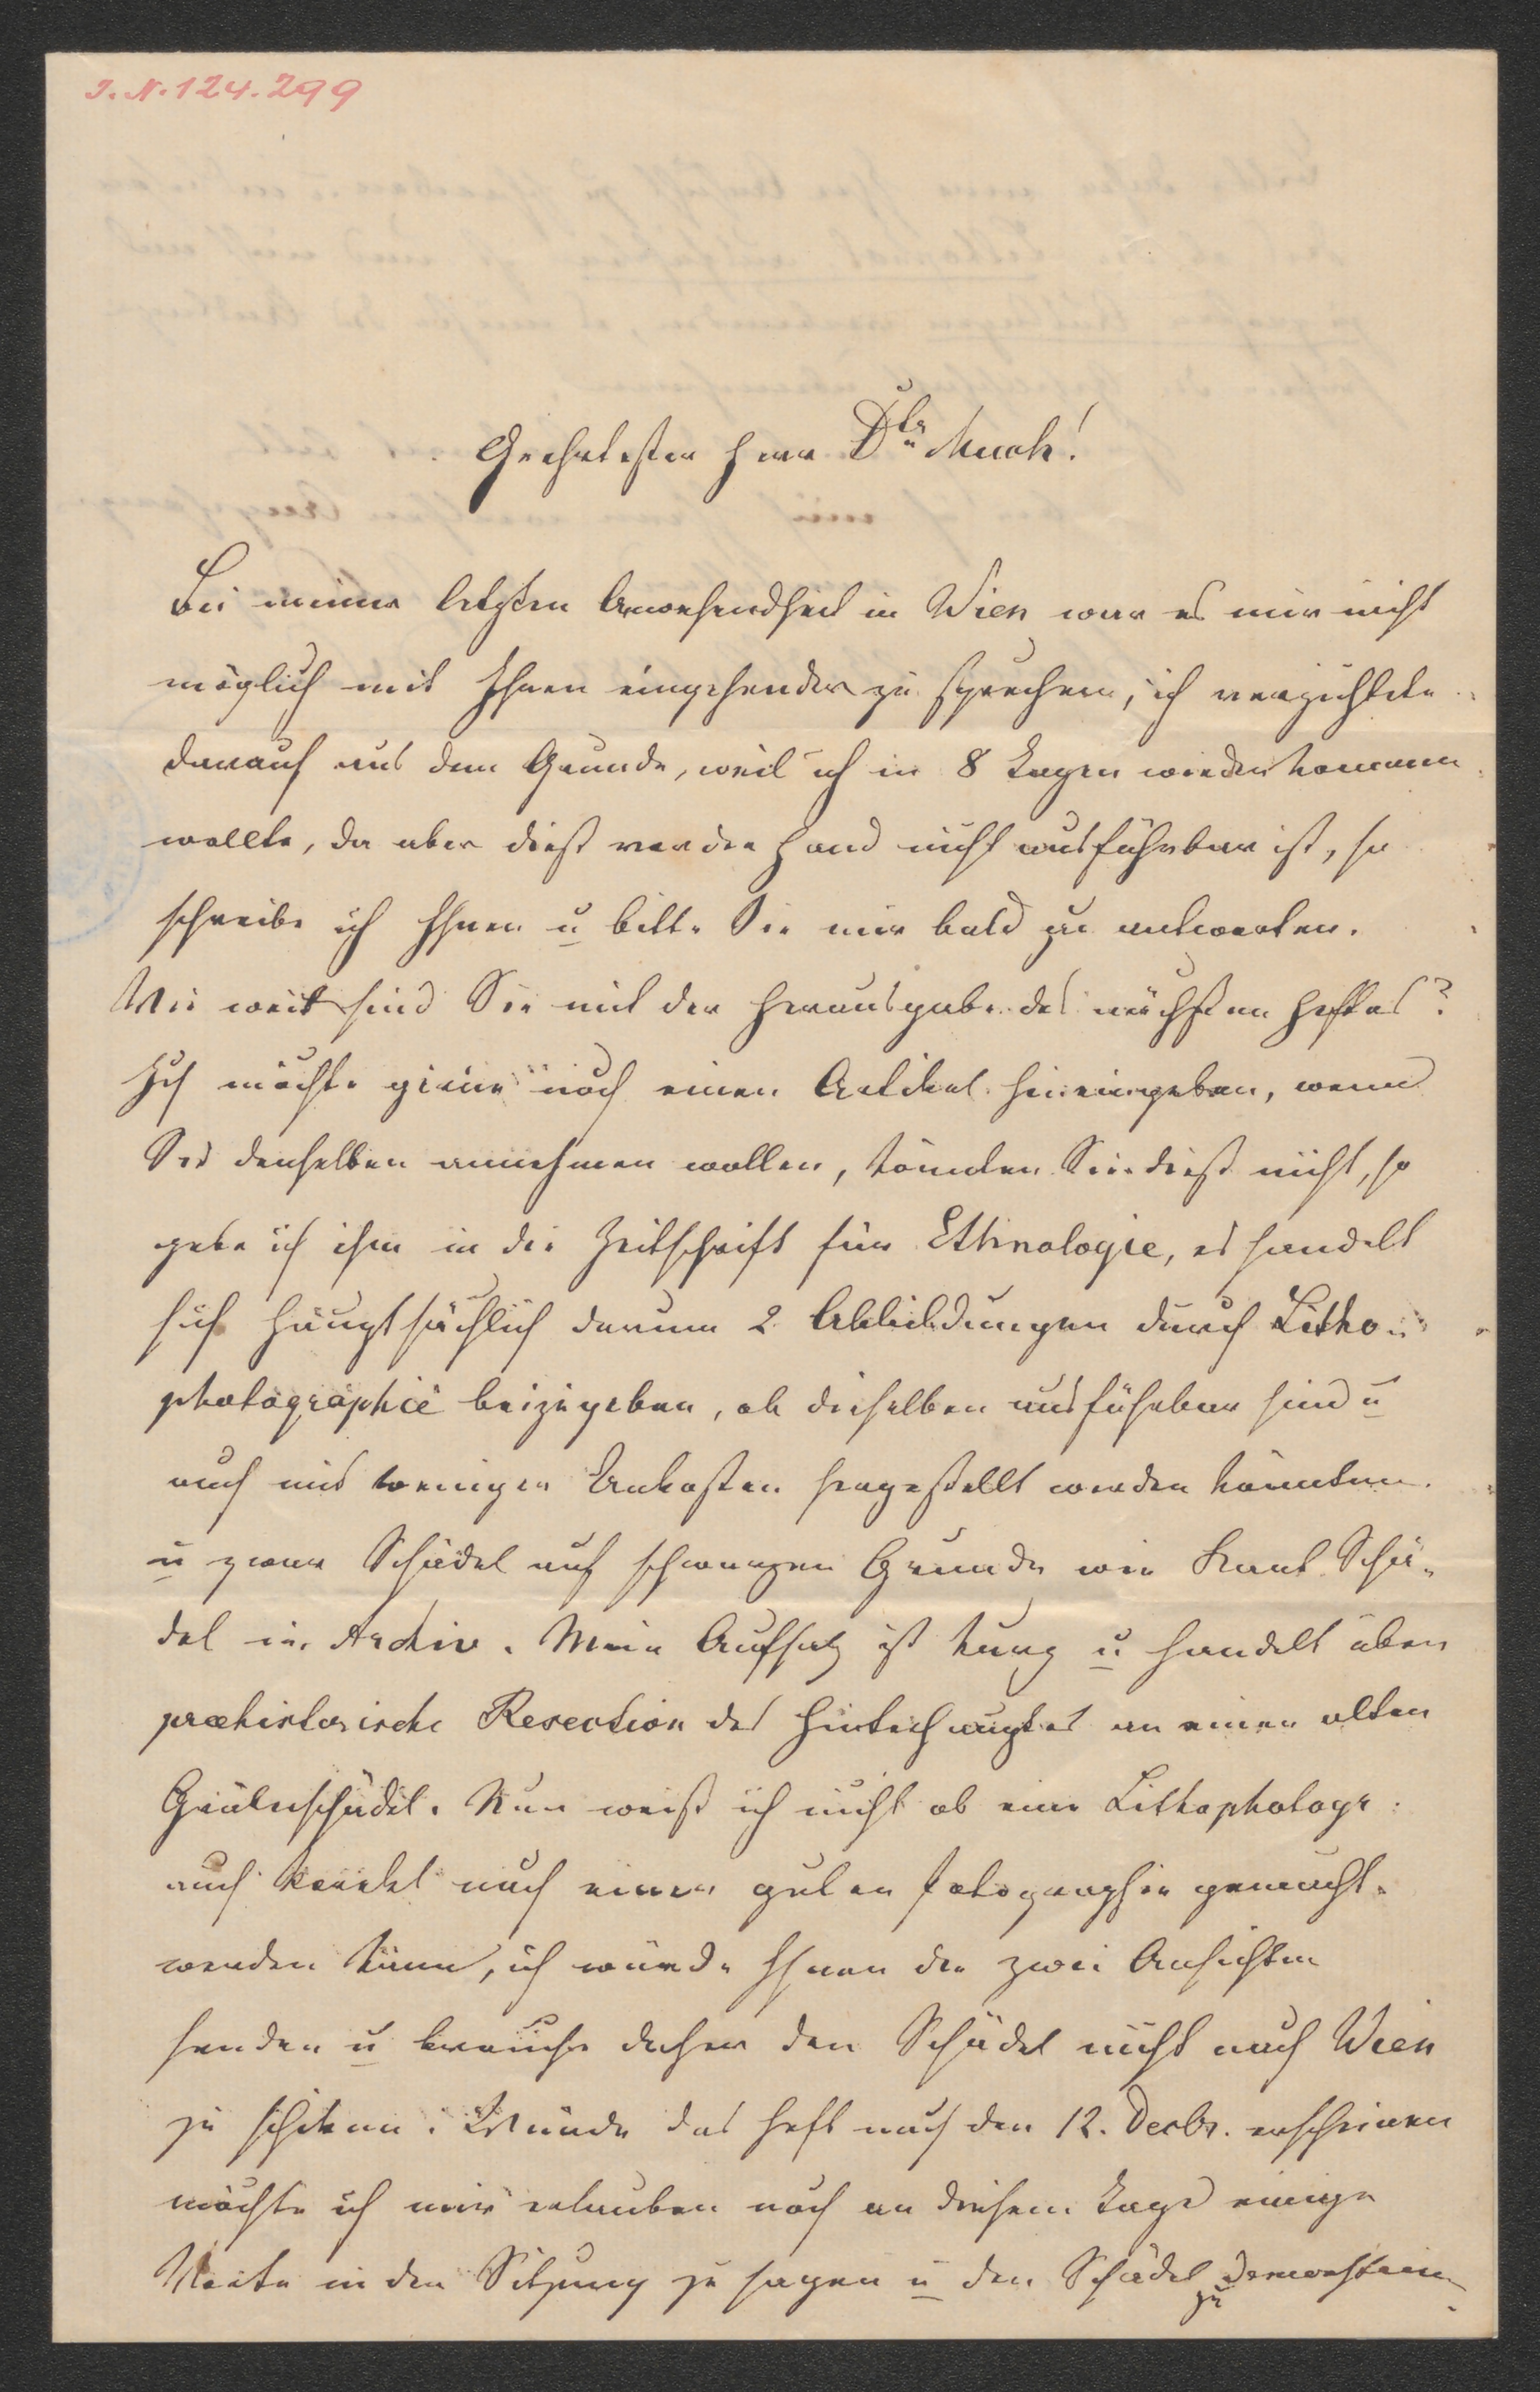 I. N. 124.299
Geehrtester Herr Dtr Much!
Bei meiner letzten Anwesendheit in Wien war es mir nicht
möglich mit Ihnen eingehender zu sprechen, ich verzichtete
darauf aus dem Grunde, weil ich in 8 Tagen wieder kommen
wollte, da aber dieß vor der Hand nicht ausführbar ist, so
schreibe ich Ihnen u bitte Sie mir bald zu antworten.
Wie weit sind Sie mit der Herausgabe des nächsten Heftes?
Ich möchte gerne noch einen Artikel hineingeben, wenn
Sie denselben annehmen wollen, könnten Sie dieß nicht, so
gebe ich ihn in die Zeitschrift für Ethnologie, es handelt
sich hauptsächlich darum 2 Abbildungen durch Litho-
photographie beizugeben, ob dieselben ausführbar sind u
auch mit wenigen Unkosten hergestellt werden könnten
u zwar Schädel auf schwarzen Grunde wie Kant Schä-
del in Archiv. Mein Aufsatz ist kurz u handelt über
præhistorische Resection des Hinterhauptes an einen alten
Gräberschädel. Nun weiß ich nicht ob eine Lithophotogr.
auch korrekt nach einer guten Fotographie gemacht
werden kann, ich würde Ihnen die zwei Ansichten
senden u brauche daher den Schädel nicht nach Wien
zu schicken. Würde das Heft nach den 12. Decbr. erscheinen
möchte ich mir erlauben noch an diesem Tage einige
Worte in der Sitzung zu sagen u den Schädel zu demonstrier-